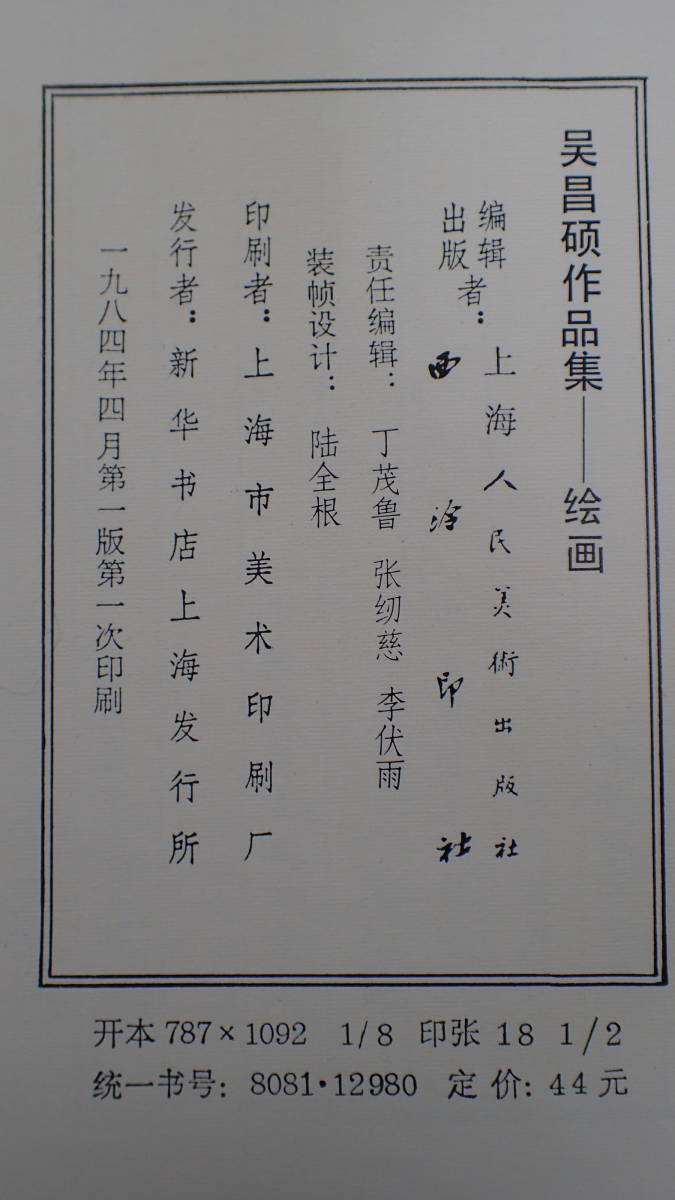 吴昌硕作品集——绘画
编辑
出版者：上海人民美術出版社
西泠印社
责任编辑：丁茂鲁 张纫慈 李伏雨
装帧设计：陆全根
印刷者：上海市美术印刷厂
发行者：新华书店上海发行所
一九八四年四月第一版第一次印刷
开本 787×1092 1/8 印张 18 1/2
统一书号：8081·12980 定价：44元